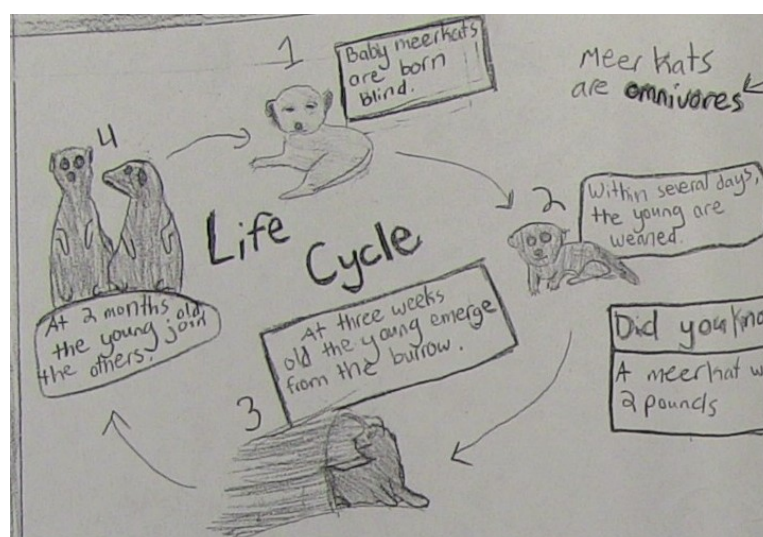 1
Baby meerkats
are born
Blind.
Meerkats
are omnivores
4
2
Within several days,
the young are
weaned.
Life
Cycle
At 2 months old
the young join
the others.
At three weeks
old the young emerge
from the burrow.
3
Did you kno
A meerkat w
2 pounds